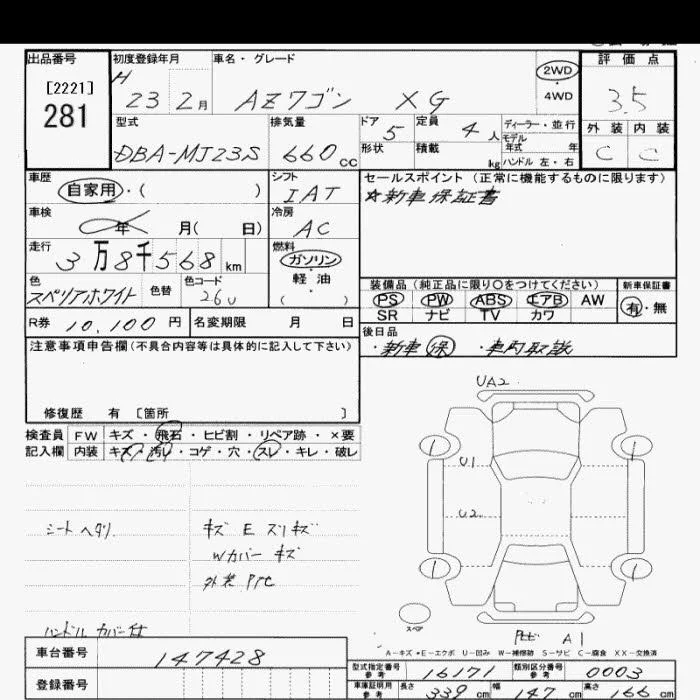 出品番号 初度登録年月 車名・グレード 評価点
[2221] H 2WD
281 23 2月 AZワゴン XG 4WD 3.5
型式 排気量 ドア 5 定員 4人 ディーラー・並行 外装 内装
モデル年式 年
DBA-MJ23S 660cc 形状 積載 kg ハンドル 左・右 C C
車歴 自家用・( ) シフト IAT セールスポイント (正常に機能するものに限ります)
☆新車保証書
車検 年 月( 日) 冷房 AC
走行 3万8千568km 燃料 ガソリン・軽油・( )
色 スペリアホワイト 色替 色コード 26U
装備品 (純正品に限り〇をつけてください) 新車保証書
PS PW ABS エアB AW 有・無
SR ナビ TV カワ
R券 10,100円 名変期限 月 日 後日品
・新車保 ・車内取説
注意事項申告欄(不具合内容等は具体的に記入して下さい)
修復歴 有 [箇所 ]
検査員 FW キズ・飛石・ヒビ割・リペア跡・×要
記入欄 内装 キズ・汚レ・コゲ・穴・スレ・キレ・破レ
UA2
U1
U2
シートヘタリ キズ E スリキズ
Wカバー キズ
外装 P代
ハンドルカバー付
スペア
A1
A-キズ •E-エクボ U-凹み W-補修跡 S-サビ C-腐食 XX-交換済
車台番号 147428
登録番号
型式指定番号 参考 16171 類別区分番号 参考 0003
車庫証明用 参考 長さ 339cm 幅 147cm 高さ 166cm